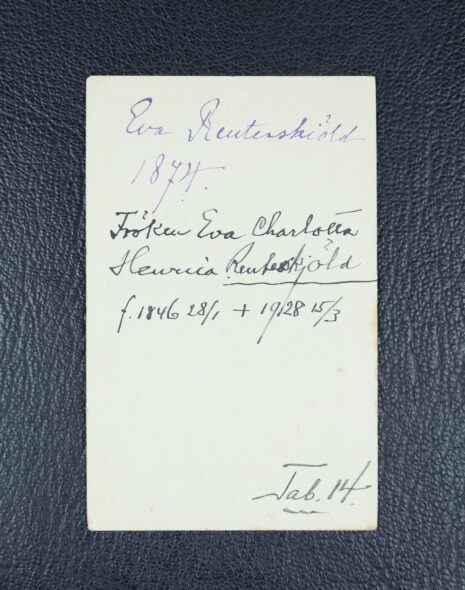 Eva Reuterskiöld
1874.
Fröken Eva Charlotta
Henrica Reuterskjöld
f. 1846 28/1 + 1928 15/3
Tab. 14.